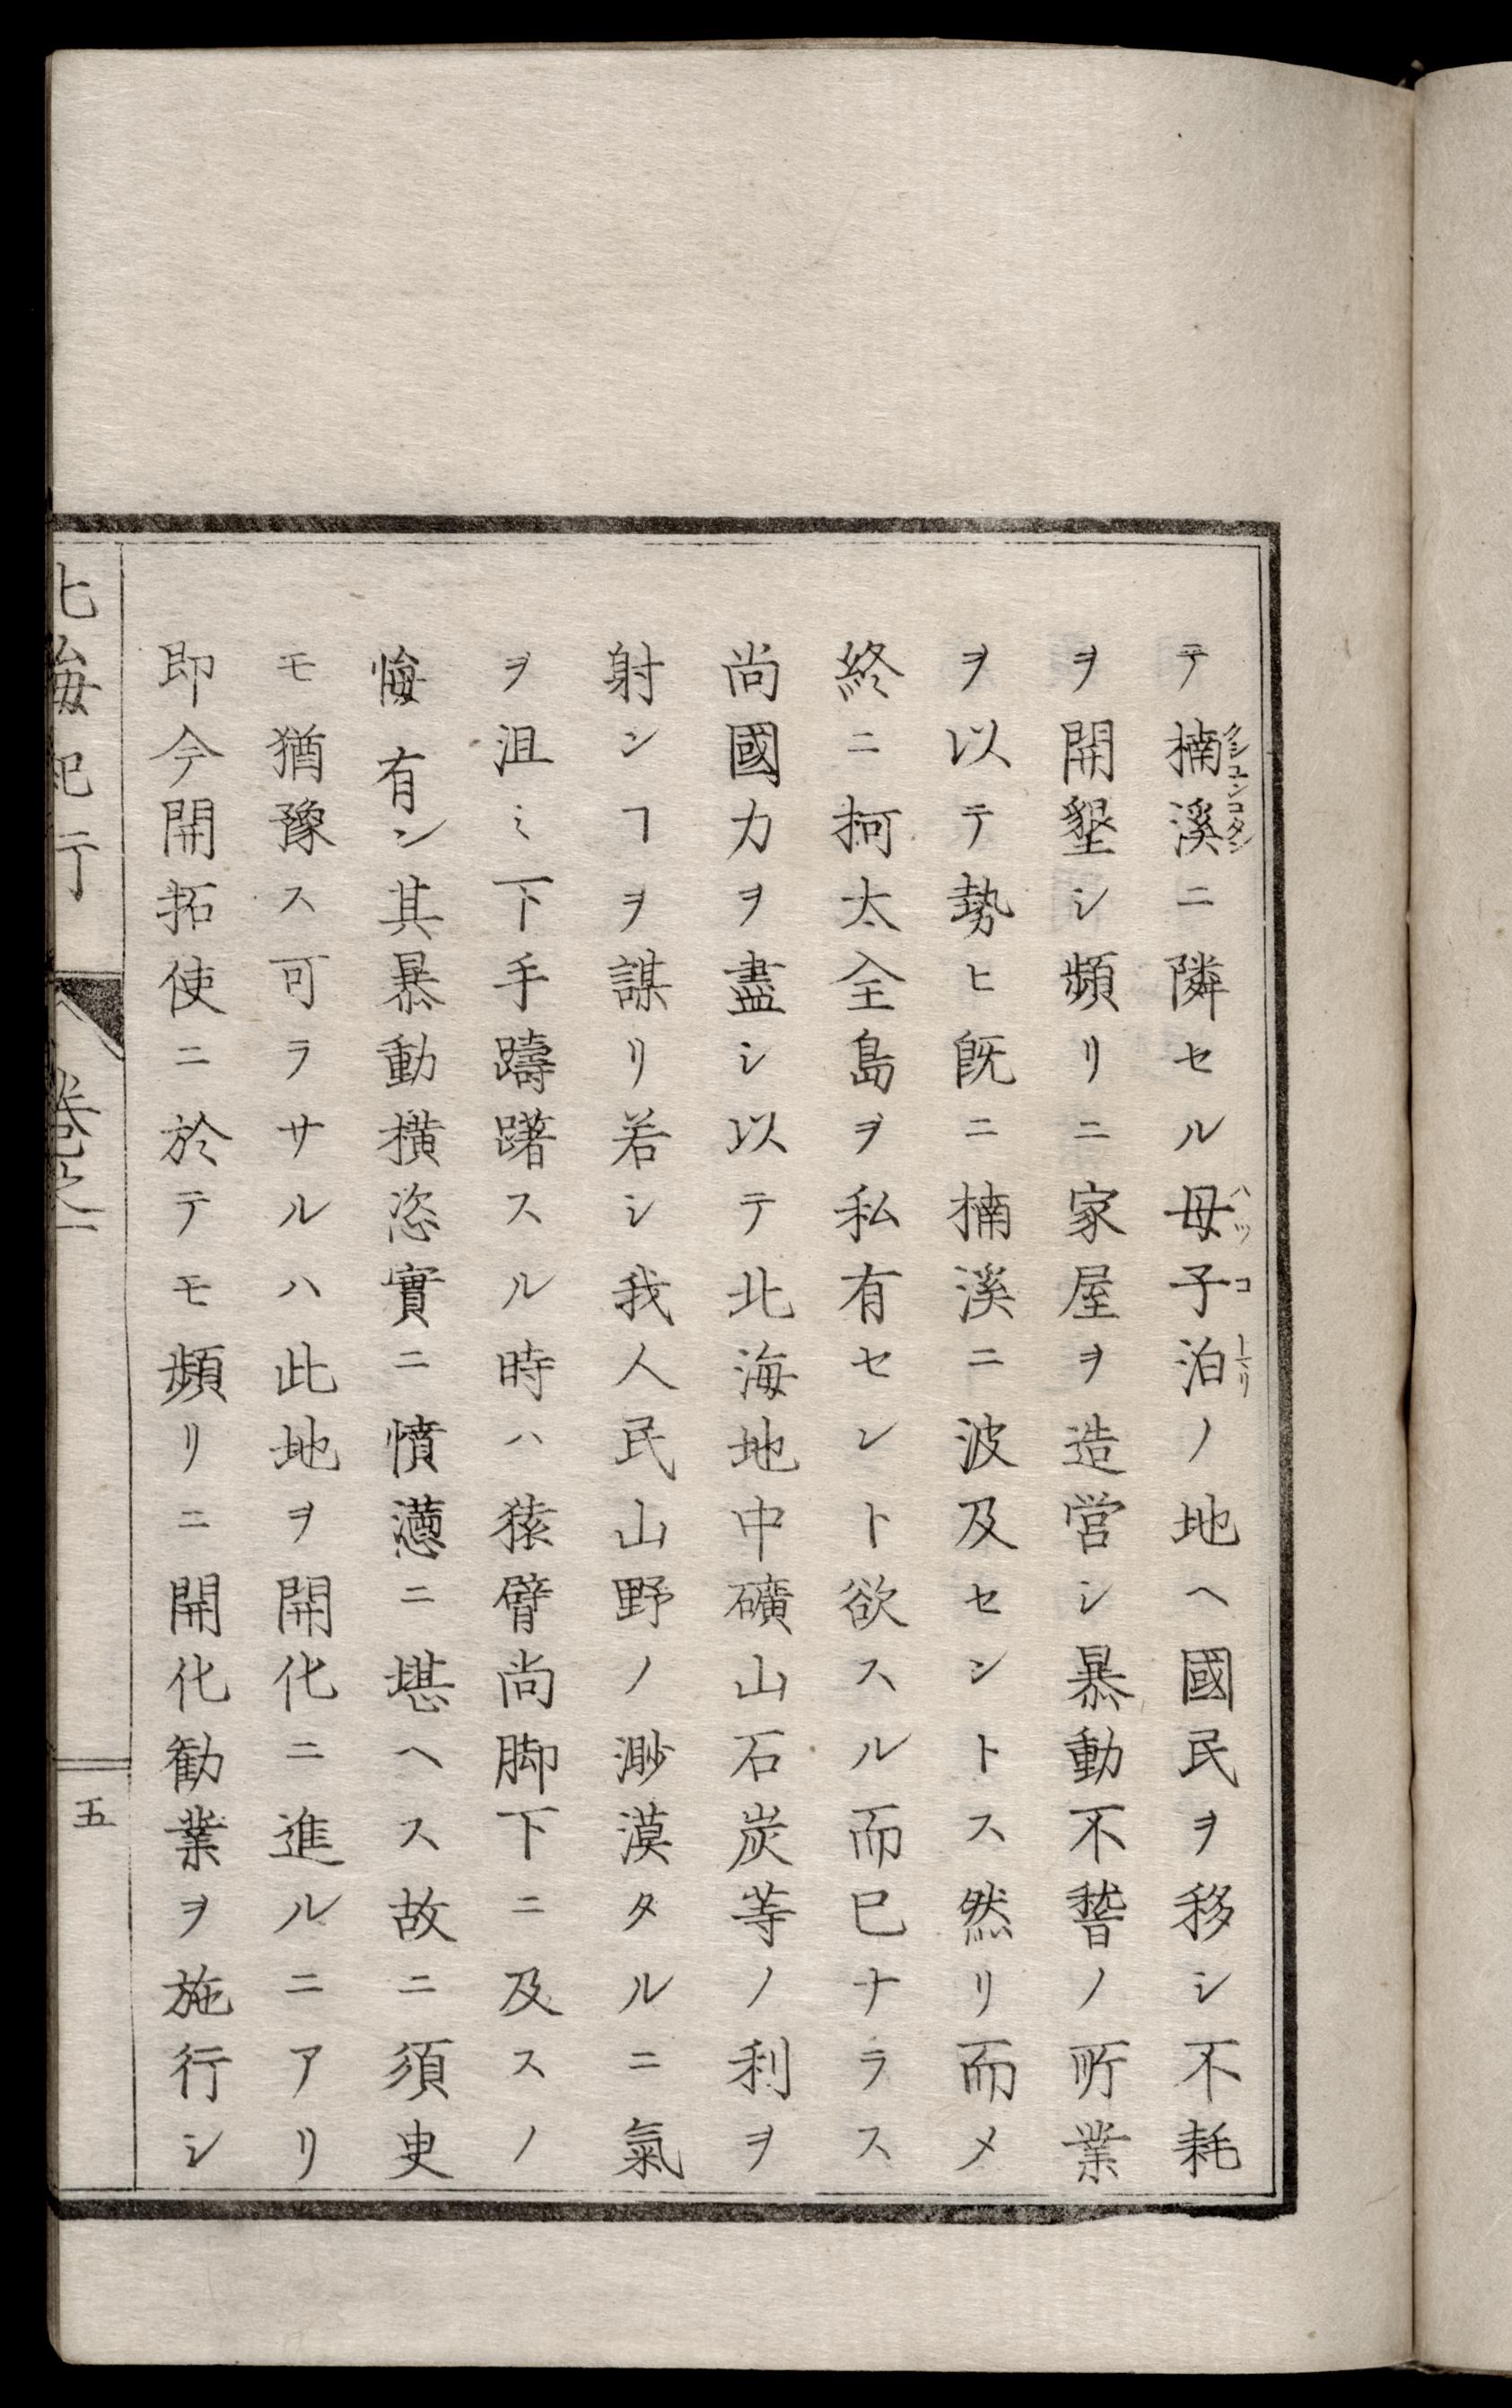 テ楠溪ニ隣セル母子泊ノ地ヘ國民ヲ移シ不耗
クシユンコタン
ハツコトマリ
ヲ開墾シ頻リニ家屋ヲ造営シ暴動不ノ所業
ヲ以テ勢ヒ既ニ楠溪ニ波及セントス然リ而メ
終ニ柯太全島ヲ私有セント欲スル而已ナラス
尚國力ヲ盡シ以テ北海地中礦山石炭等ノ利ヲ
射ンヿヲ謀リ若シ我人民山野ノ渺漠タルニ氣
ヲ沮ミ下手躊躇スル時ハ猿臂尚脚下ニ及スノ
悔有ン其暴動横恣實ニ憤懣ニ堪ヘス故ニ須臾
モ猶豫ス可ラサルハ此地ヲ開化ニ進ルニアリ
即今開拓使ニ於テモ頻リニ開化勧業ヲ施行シ
北海紀行
巻之一
五